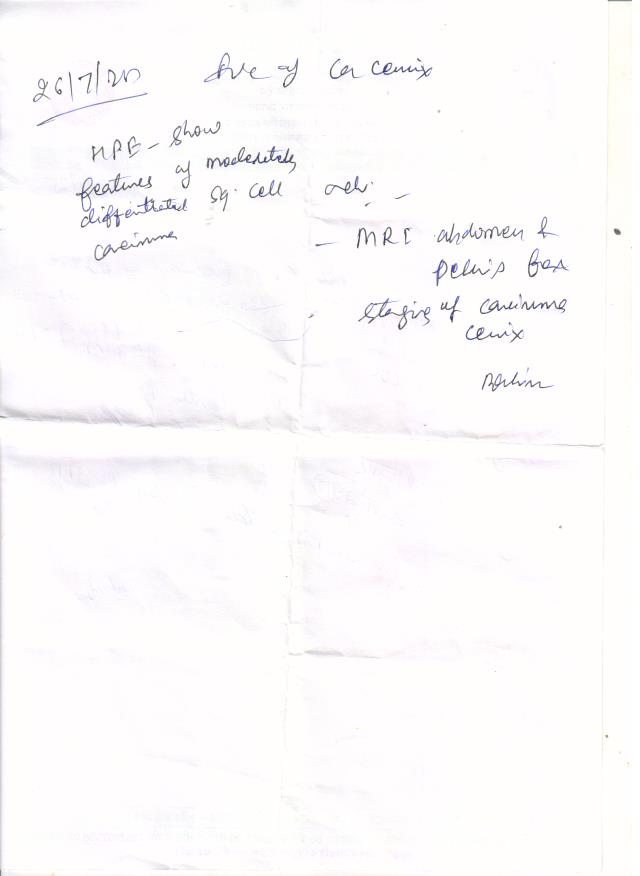 26/7/20 of Ca cervix
HPE – Show
features of moderately
differentiated sq. cell
carcinoma
adv. –
– MRI abdomen &
pelvis for
staging of carcinoma
cervix